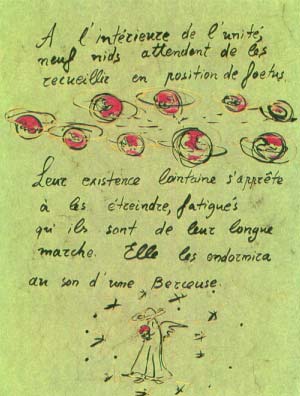 A l'intérieure de l'unité,
neuf nids attendent de les
recueillir en position de foetus.
Leur existence lointaine s'apprête
à les étreindre, fatigués
qu'ils sont de leur longue
marche. Elle les endormira
au son d'une Berceuse.